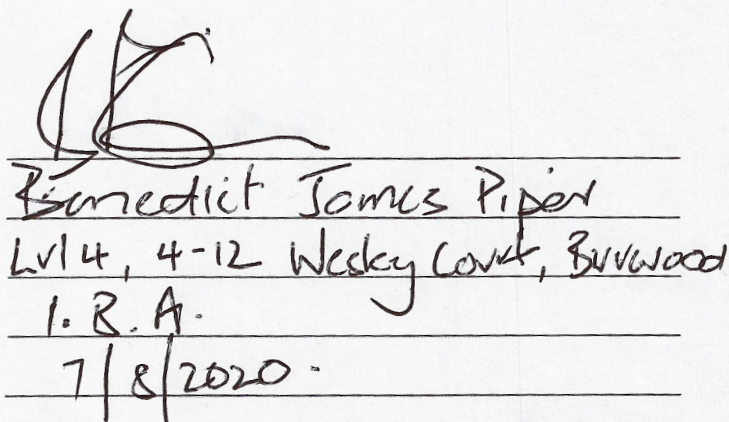 Benedict James Piper
Lvl 4, 4-12 Wesley Court, Burwood
I. B. A.
7/8/2020.